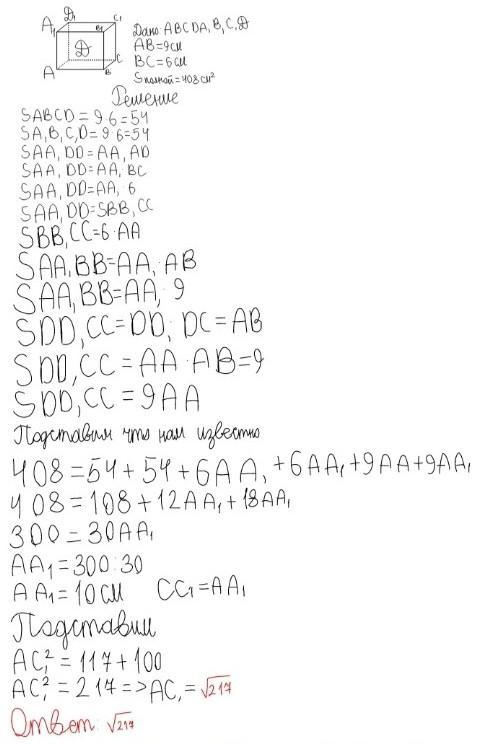 D₁ C₁
A₁ B₁
Д
A B C
Дано: ABCDA₁B₁C₁D₁
AB=9см
BC=6см
Sполной=408см²
Решение
SABCD = 9·6=54
SA₁B₁C₁D₁=9·6=54
SAA₁DD=AA₁AD
SAA₁DD=AA₁BC
SAA₁DD=AA₁·6
SAA₁DD=SBB₁CC
SBB₁CC=6·AA
SAA₁BB=AA₁·AB
SAA₁BB=AA₁·9
SDD₁CC=DD₁ DC=AB
SDD₁CC=AA·AB=9
SDD₁CC=9AA
Подставим что нам известно
408=54+54+6AA₁+6AA₁+9AA+9AA₁
408=108+12AA₁+18AA₁
300=30AA₁
AA₁=300:30
AA₁=10см CC₁=AA₁
Подставим
AC₁²=117+100
AC₁²=217=>AC₁=√217
Ответ: √217